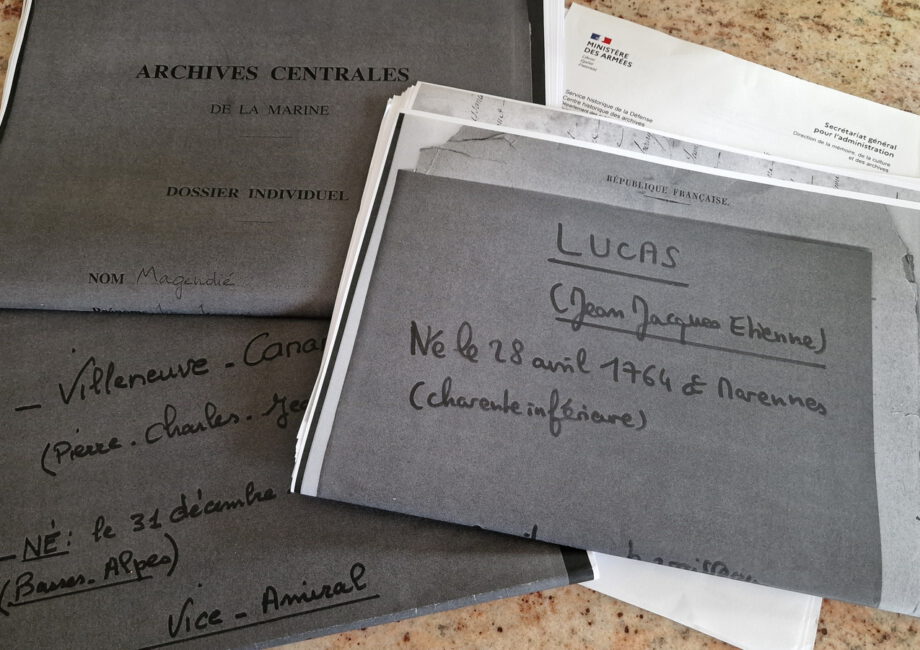 ARCHIVES CENTRALES
DE LA MARINE
DOSSIER INDIVIDUEL
NOM Magendié
MINISTÈRE
DES ARMÉES
Liberté
Égalité
Fraternité
Service historique de la Défense
Centre historique des archives
Secrétariat général
pour l'administration
Direction de la mémoire, de la culture
et des archives
RÉPUBLIQUE FRANÇAISE.
LUCAS
(Jean Jacques Etienne)
Né le 28 avril 1764 à Marennes
(charente inférieure)
- Villeneuve - Cana
(Pierre - Charles -
- NÉ: le 31 décembre
(Basses-Alpes)
Vice - Amiral